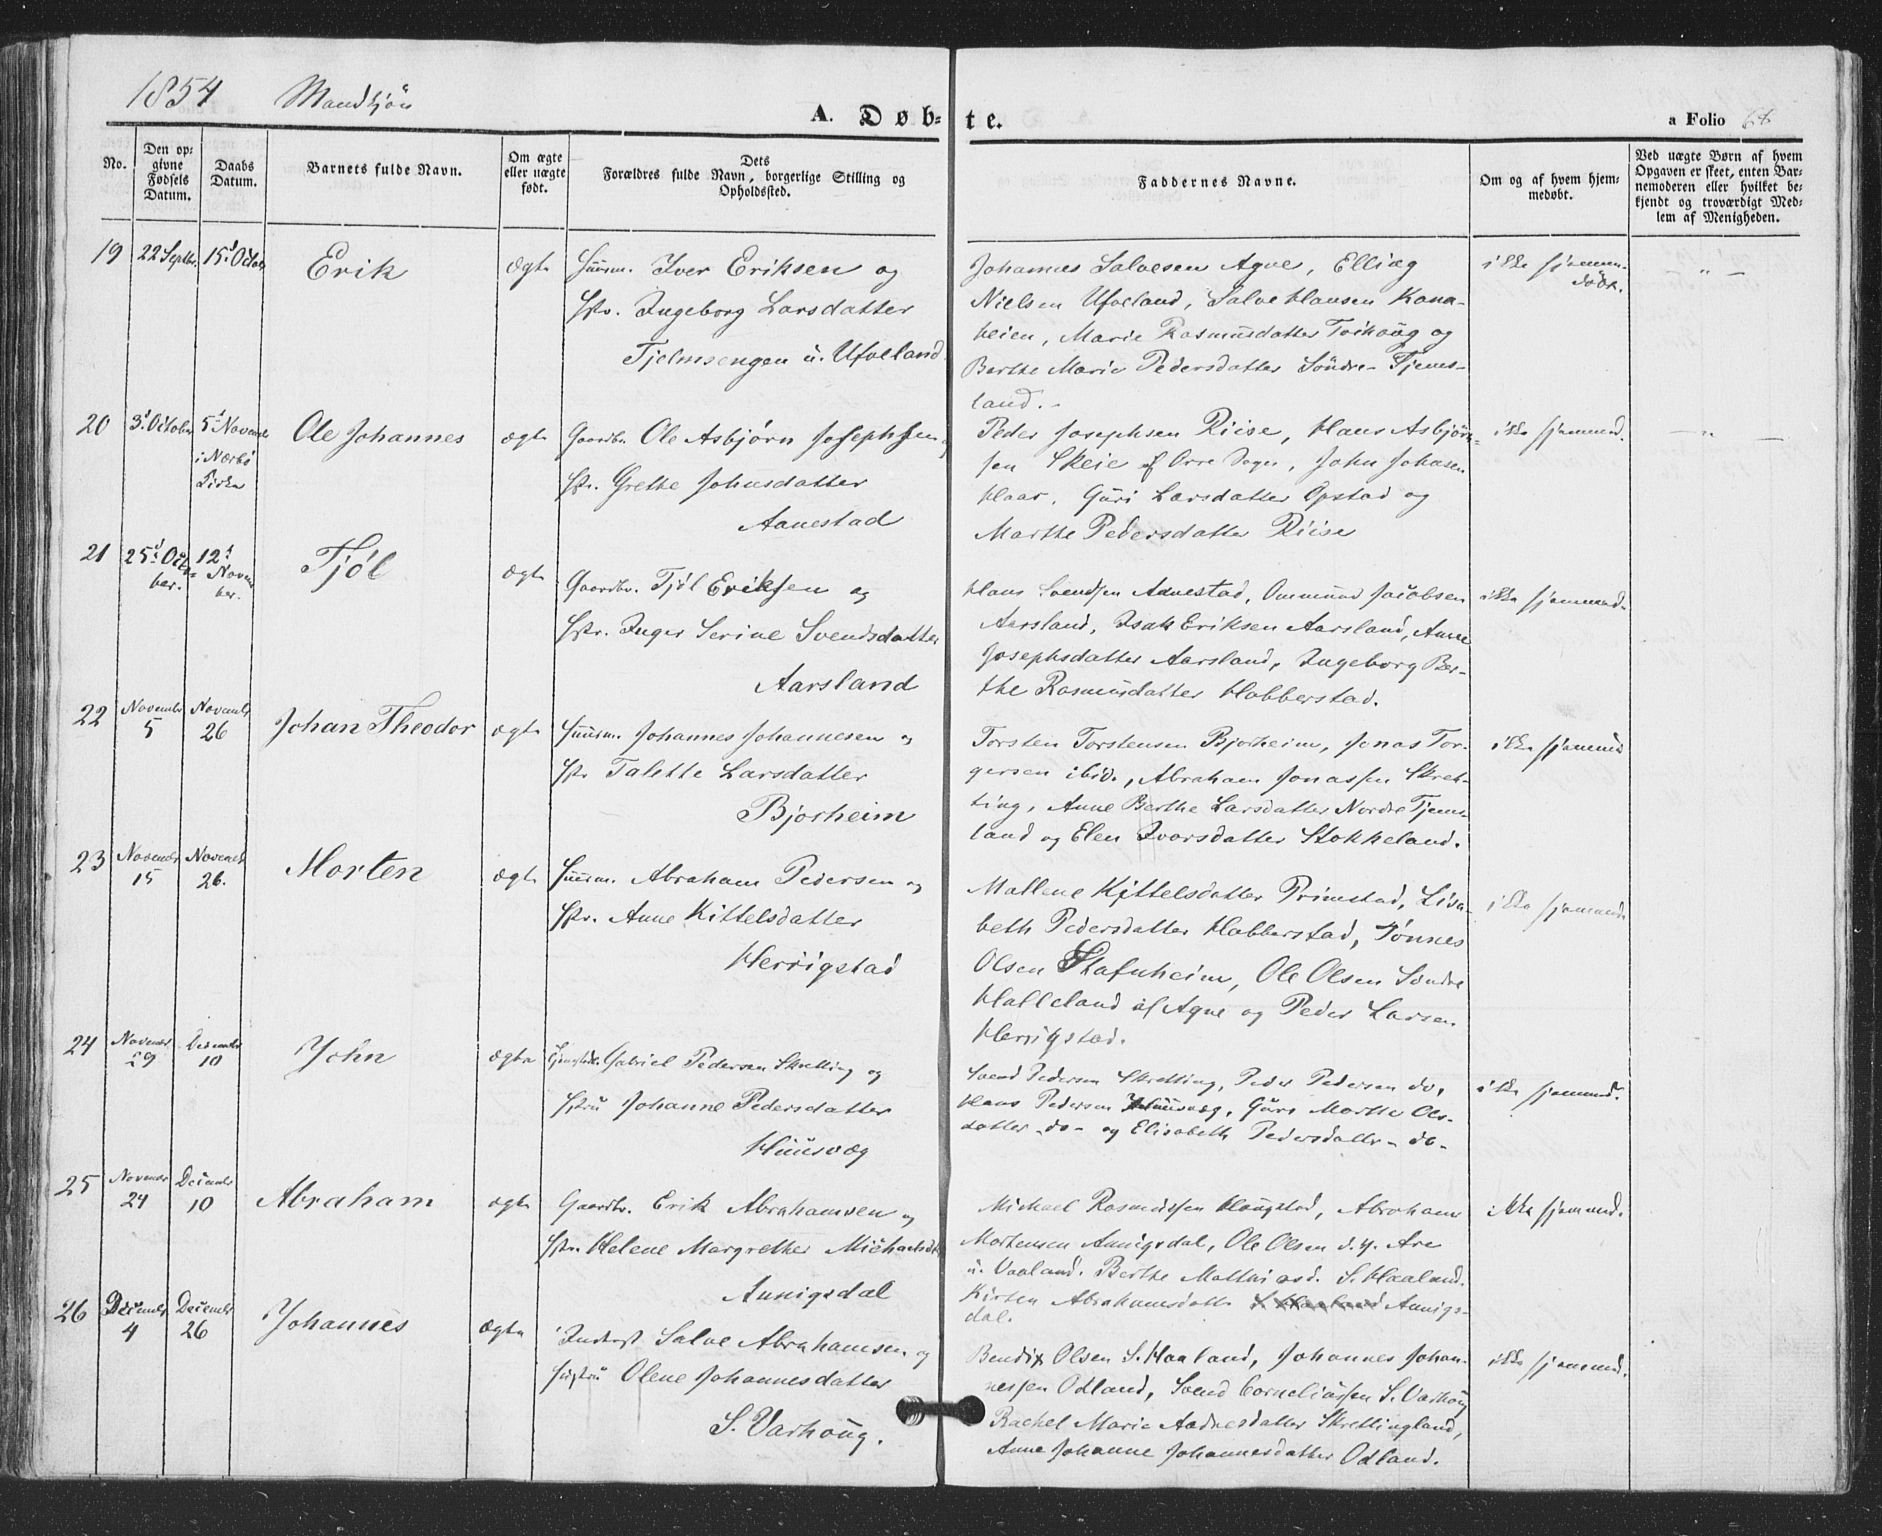 1854 Mandkjön
A. Døb- te.
a Folio 68
No.
Den op-
givne
Fødsels
Datum.
Daabs
Datum.
Barnets fulde Navn.
Om ægte
eller uægte
født.
Dets
Forældres fulde Navn, borgerlige Stilling og
Opholdssted.
Faddernes Navne.
Om og af hvem hjem-
medøbt.
Ved uægte Børn af hvem
Opgaven er skeet, enten Bar-
nemoderen eller hvilket be-
kjendt og troværdigt Med-
lem af Menigheden.
19 22 Septbr. 15d Octob. Erik ægte Huusm. Iver Eriksen og
Hstr. Ingeborg Larsdatter
Tjelmsengen u. Ufveland
Johannes Salvesen Agve, Elling
Nielsen Ufveland, Salve Hansen Kana-
heien, Marie Rasmusdatter Tvihoug og
Berthe Marie Pedersdatter Söndre Tjems-
land.
ikke hjemme-
döbt.
" -
20 3d October 5d November
i Nærbö
Kirke
Ole Johannes ægte Gaardbr. Ole Asbjørn Josephsen og
Hstr. Grethe Johnsdatter
Aanestad
Peder Josephsen Riise, Hans Asbjörn-
sen Skeie af Orre Sogn, John Johnsen
Haar, Guri Larsdatter Opstad og
Marthe Pedersdatter Riise
ikke hjemmed.
- " -
21 25d Octo-
ber.
12d
Novem-
ber.
Tjøl ægte Gaardbr. Tjöl Eriksen og
Hstr. Inger Serine Svendsdatter
Aarsland
Hans Svendsen Aanestad, Ommund Jacobsen
Aarsland, Isak Eriksen Aarsland, Anne
Josephsdatter Aarsland, Ingeborg Ber-
the Rasmusdatter Hobberstad.
ikke hjemmed.
22 November
5
November
26
Johan Theodor ægte Huusm. Johannes Johannesen og
Hstr Talette Larsdatter
Bjorheim
Torsten Torstensen Bjorheim, Jonas Tor-
gersen ibid., Abraham Jonassen Skret-
ting, Anne Berthe Larsdatter Nordre Tjems-
land og Elen Ivorsdatter Stokkeland.
ikke hjemmed
23 November
15
November
26.
Morten ægte Huusm. Abraham Pedersen og
Hstr. Anne Kittelsdatter
Herrigstad
Mallene Kittelsdatter Primstad, Lisa-
beth Pedersdatter Hobberstad, Tönnes
Olsen Stafnheim, Ole Olsen Söndre
Halleland af Agve og Peder Larsen
Herrigstad.
ikke hjemmed.
24 November
29
December
10
John ægte Gabriel Pedersen Skretting og
Hstru Johanne Pedersdatter
Huusvæg
Svend Pedersen Skretting, Peder Pedersen do,
Hans Pedersen Huusvæg, Guri Marthe Ols-
datter -do- og Elisabeth Pedersdattr - do-
ikke hjemmed.
25 November
24
December
10
Abraham ægte Gaardbr. Erik Abrahamsen og
Hstr. Helene Margrethe Michaelsdr
Aunigsdal
Michael Rasmussen Haugstad, Abraham
Mortensen Aunigsdal, Ole Olsen d.y. Are
u. Vaaland. Berthe Mathiasd. S. Haaland.
Kirsten Abrahamsdattr Aunigs-
dal.
ikke hjemmed.
26 December
4
December
26
Johannes ægte Inderst Salve Abrahamsen og
Hustru Olene Johannesdatter
S. Varhoug.
Bendix Olsen S. Haaland, Johannes Johan-
nessen Odland, Svend Corneliussen S. Varhoug
Rachel Marie Aadnesdatter Skrettingland,
Anne Johanne Johannesdatter Odland.
ikke hjemmed.